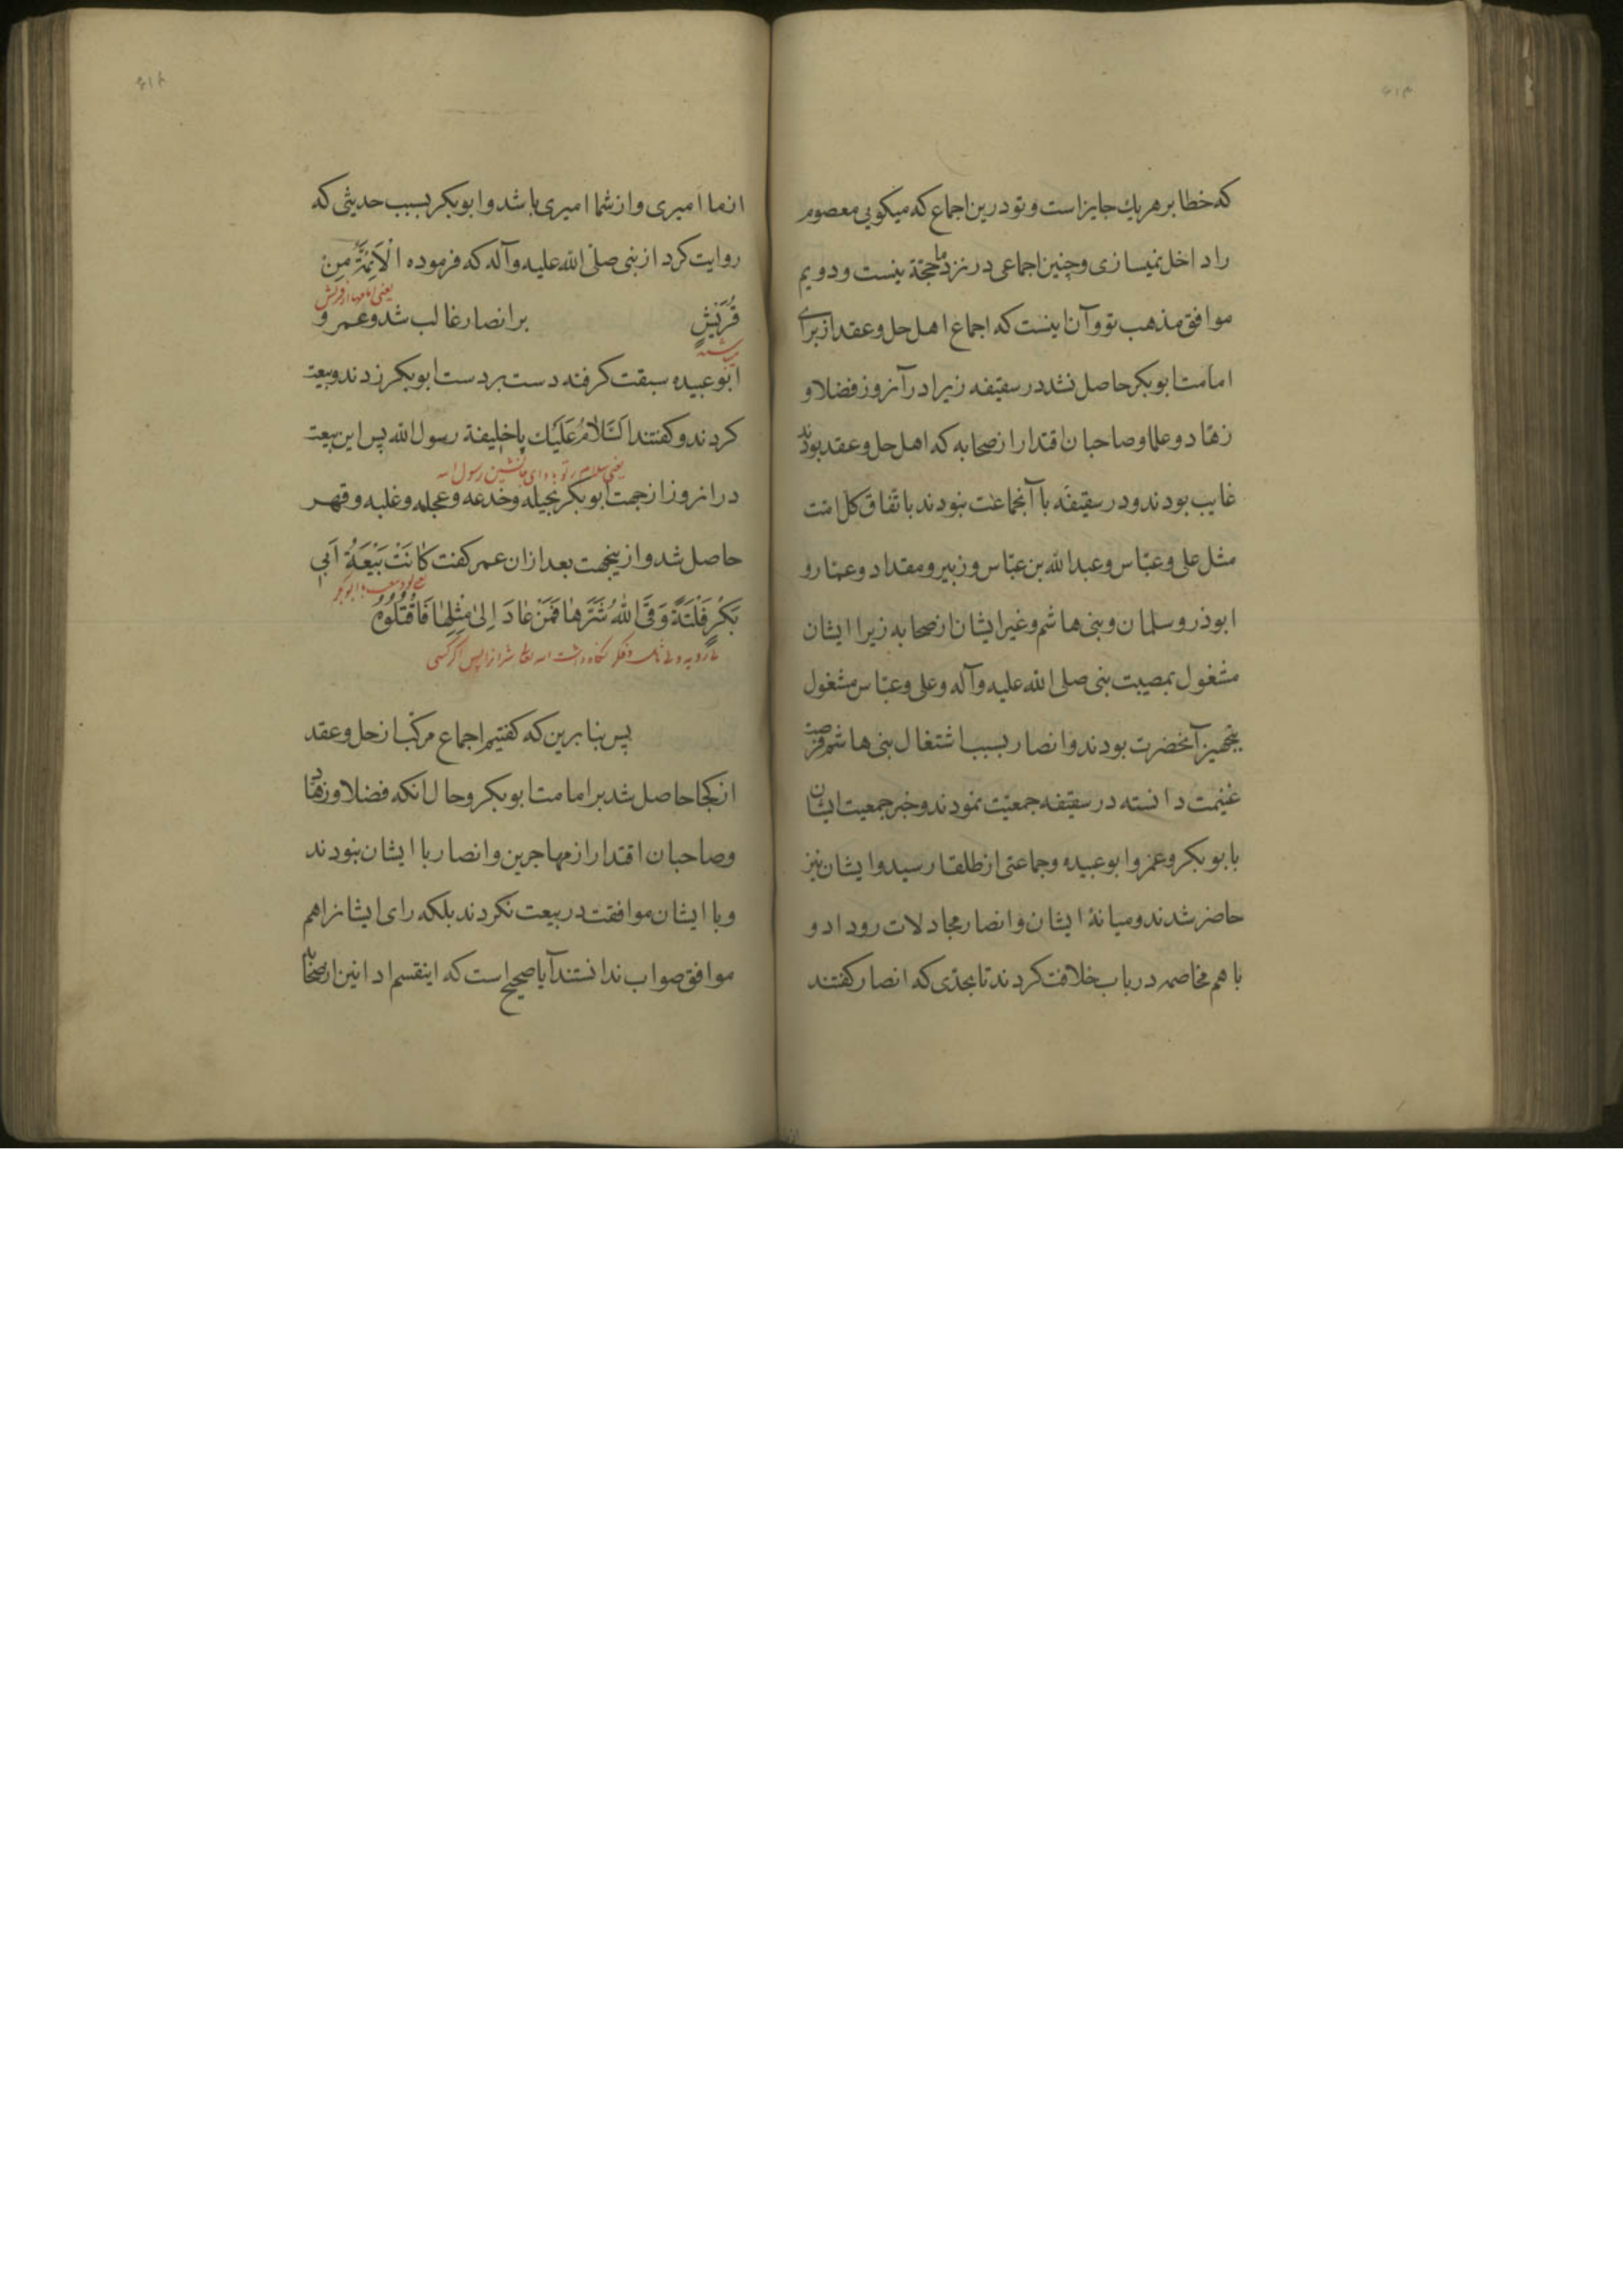 که خطا بر هر یك جایز است و تو درین اجماع که میکویی معصوم
را داخل نمیسازی و چنین اجماعی در نزد ما حجّة نیست و دویم
موافق مذهب تو و آن اینست که اجماع اهل حل و عقد از برای
امامت ابوبکر حاصل نشد در سقیفه زیرا در آنروز فضلا و
زهّاد و علما و صاحبان اقتدار از صحابه که اهل حل و عقد بودند
غایب بودند و در سقیفه با آنجماعت نبودند باتّفاق کل امّت
مثل علی و عبّاس و عبدالله بن عبّاس و زبیر و مقداد و عمّار و
ابوذر و سلمان و بنی هاشم و غیر ایشان از صحابه زیرا ایشان
مشغول بمصیبت نبی صلی الله علیه وآله و علی و عبّاس مشغول
بتجهیز آنحضرت بودند و انصار بسبب اشتغال بنی هاشم فرصت
غنیمت دانسته در سقیفه جمعیّت نمودند و خبر جمعیت ایشان
بابوبکر و عمر و ابوعبیده و جماعتی از طلقا رسید و ایشان نیز
حاضر شدند و میانۀ ایشان و انصار مجادلات رو داد و
با هم مخاصمه در باب خلافت کردند تا بحدّی که انصار کفتند
از ما امیری و از شما امیری باشد و ابوبکر بسبب حدیثی که
روایت کرد از نبی صلی الله علیه وآله که فرموده اَلْاَئِمَّةُ مِنْ
یعنی امامها از قریش
قُرَیْشٍ بر انصار غالب شد و عمر و
میباشند
ابوعبیده سبقت کرفته دست بر دست ابوبکر زدند و بیعت
کردند و کفتند اَلسَّلامُ عَلَیْكَ یا خلیفة رسول الله پس این بیعت
یعنی سلام بر تو باد ای جانشین رسول الله
در انروز از جهت ابوبکر بحیله و خدعه و عجله و غلبه و قهر
حاصل شد و ازینجهت بعد ازان عمر کفت کانَتْ بَیْعَةُ اَبی
بَکْرٍ فَلْتَةً وَقَی اللهُ شَرَّها فَمَنْ عادَ اِلیٰ مِثْلِها فَاقْتُلوُهُ
پس بنا برین که کفتیم اجماع مرکّب از حل و عقد
از کجا حاصل شد بر امامت ابوبکر و حال انکه فضلا و زهّاد
و صاحبان اقتدار از مهاجرین و انصار با ایشان نبودند
و با ایشان موافقت در بیعت نکردند بلکه رای ایشانرا هم
موافق صواب ندانستند آیا صحیح است که اینقسم ادانین از صحابه